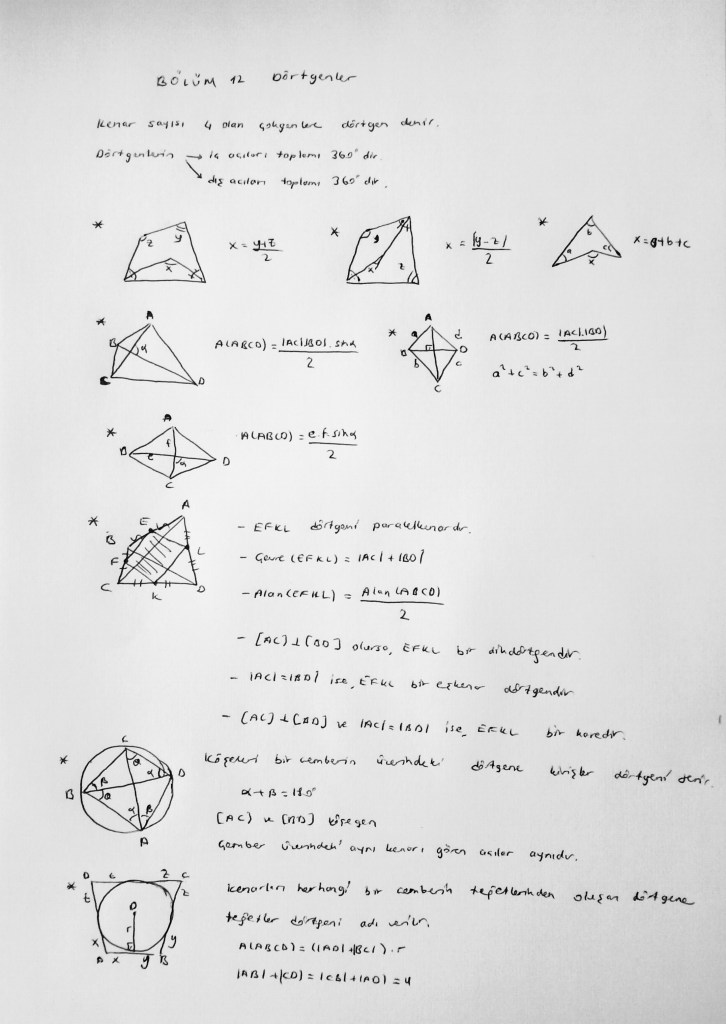 BÖLÜM 12 Dörtgenler
Kenar sayısı 4 olan çokgenlere dörtgen denir.
Dörtgenlerin → iç açıları toplamı 360° dir.
→ dış açıları toplamı 360° dir.
* z y x x = y+z / 2
* y x z x = |y-z| / 2
* b a c x x = a+b+c
* A B C D α A(ABCD) = |AC|.|BD|.sinα / 2
* A B C D a b c d A(ABCD) = |AC|.|BD| / 2
a² + c² = b² + d²
* A B C D e f α A(ABCD) = e.f.sinα / 2
* A B C D E F K L
- EFKL dörtgeni paralelkenardır.
- Çevre (EFKL) = |AC| + |BD|
- Alan(EFKL) = Alan(ABCD) / 2
- [AC] ⊥ [BD] olursa, EFKL bir dikdörtgendir.
- |AC| = |BD| ise, EFKL bir eşkenar dörtgendir
- [AC] ⊥ [BD] ve |AC| = |BD| ise, EFKL bir karedir.
* A B C D α β θ
Köşeleri bir çemberin üzerindeki dörtgene kirişler dörtgeni denir.
α + β = 180°
[AC] ve [BD] köşegen
Çember üzerindeki aynı kenarı gören açılar aynıdır.
* D t z C t z O r x y A x y B
Kenarları herhangi bir çemberin teğetlerinden oluşan dörtgene
teğetler dörtgeni adı verilir.
A(ABCD) = (|AD|+|BC|).r
|AB|+|CD| = |CB|+|AD| = 4